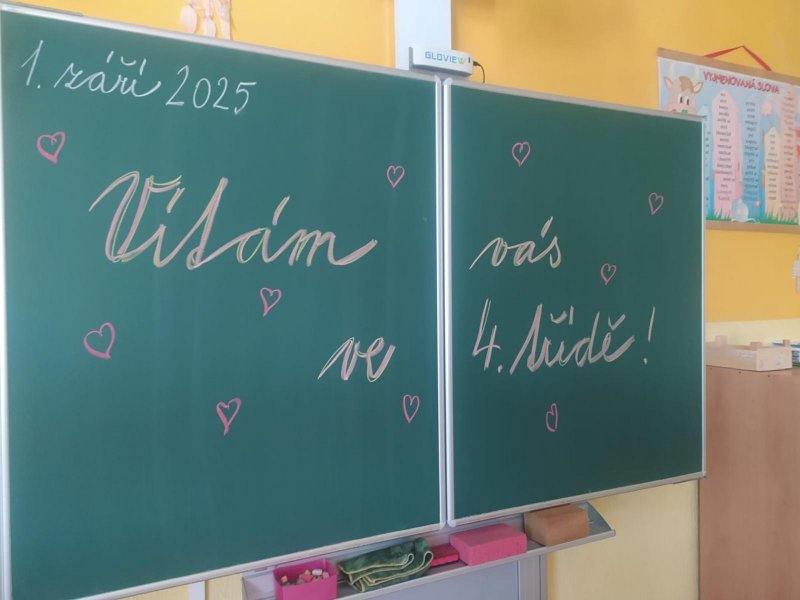 1. září 2025
Vítám vás
ve 4. třídě!
GLOVIEW
VYJMENOVANÁ SLOVA